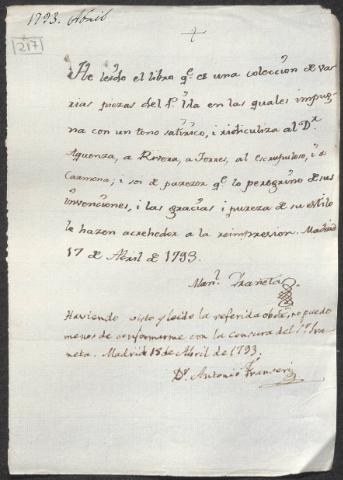 1793. Abril
217
He leído el libro q.e es una coleccion de va-
rias piezas del P. Isla en las quales impug-
na con un tono satírico, i ridiculiza al D.r
Aquenza, a Rivera, a Torres, al escrupuloso, i a
Carmona; i soi de parezer q.e lo peregrino de sus
invenciones, i las gracias i pureza de su estilo
le hazen acrehedor a la reimpresion. Madrid
17 de Abril de 1793.
Man.l
Haviendo visto y leido la referida obra, no puedo
menos de conformarme con la censura del S.r
neta. Madrid 18 de Abril de 1793.
D.n Antonio